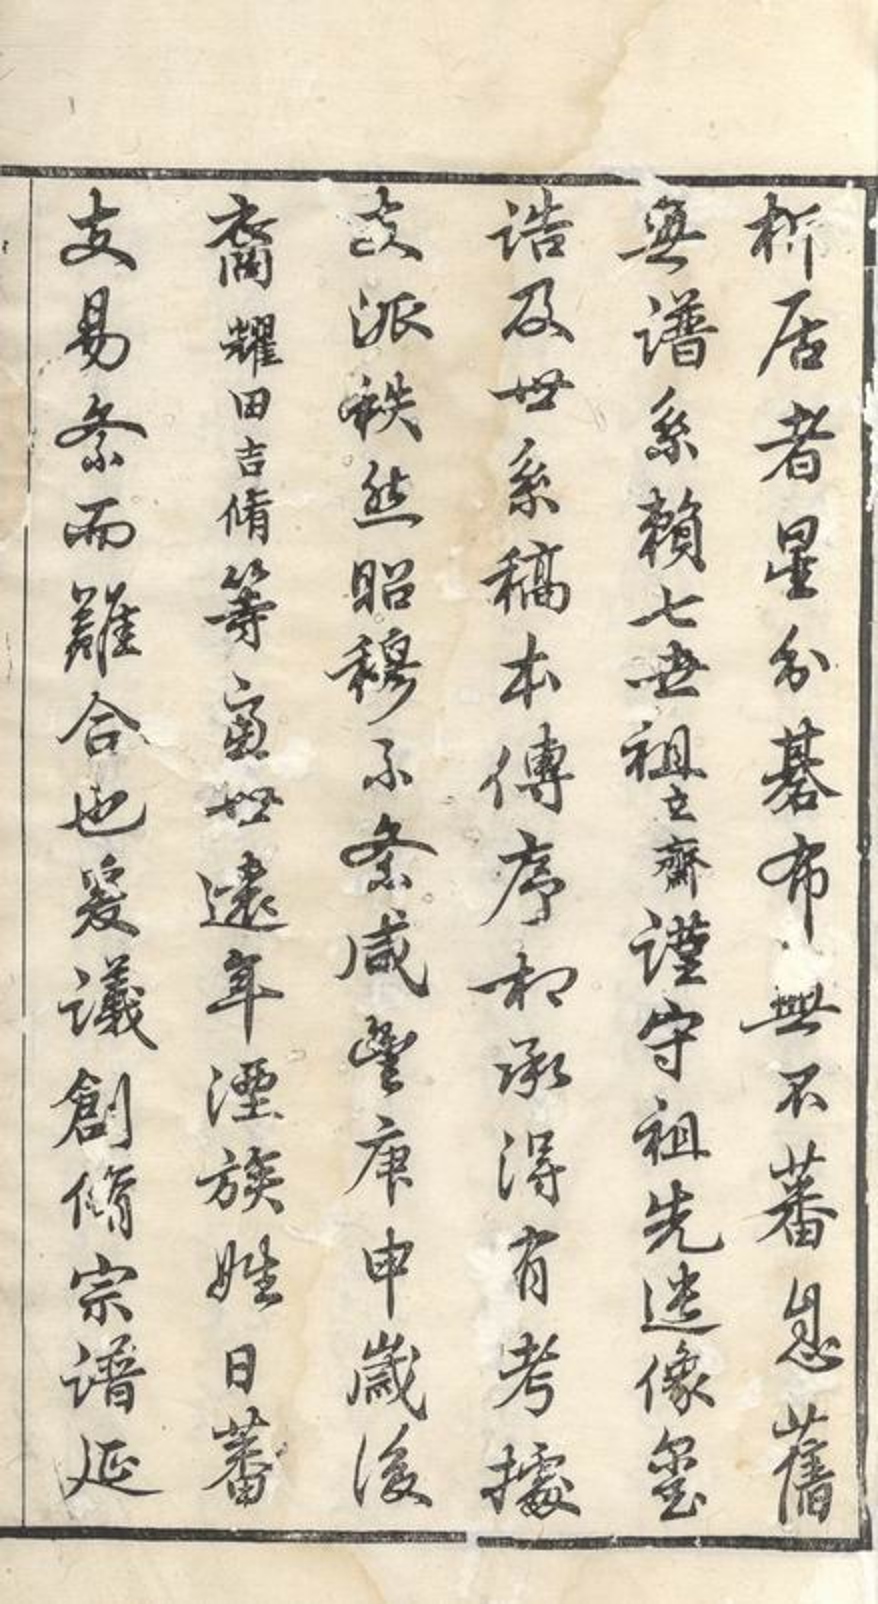 析居者星分碁布無不蕃息舊
無譜系賴七世祖立齋謹守祖先遺像璽
誥及世系稿本傳序相承得有考據
支派秩然昭穆不紊咸豐庚申歲後
裔耀田吉脩等慮世遠年湮族姓日蕃
支易紊而難合也爰議創脩宗譜延